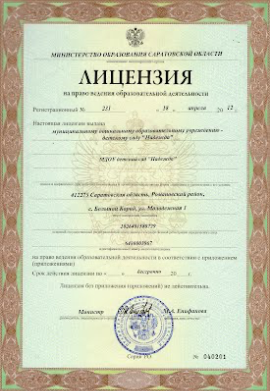 МИНИСТЕРСТВО ОБРАЗОВАНИЯ САРАТОВСКОЙ ОБЛАСТИ
ЛИЦЕНЗИЯ
на право ведения образовательной деятельности
Регистрационный № 211 " 16 апреля 20 12 г.
Настоящая лицензия выдана
муниципальному дошкольному образовательному учреждению -
детскому саду "Надежда"
МДОУ детский сад "Надежда"
412271 Саратовская область, Романовский район,
с. Большой Карай, ул. Молодежная 1
на право ведения образовательной деятельности в соответствии с приложением
(приложениями)
Срок действия лицензии по « бессрочно 20 г.
Лицензия без приложения (приложений) не действительна.
Министр М.А. Епифанова
Серия РО № 040201